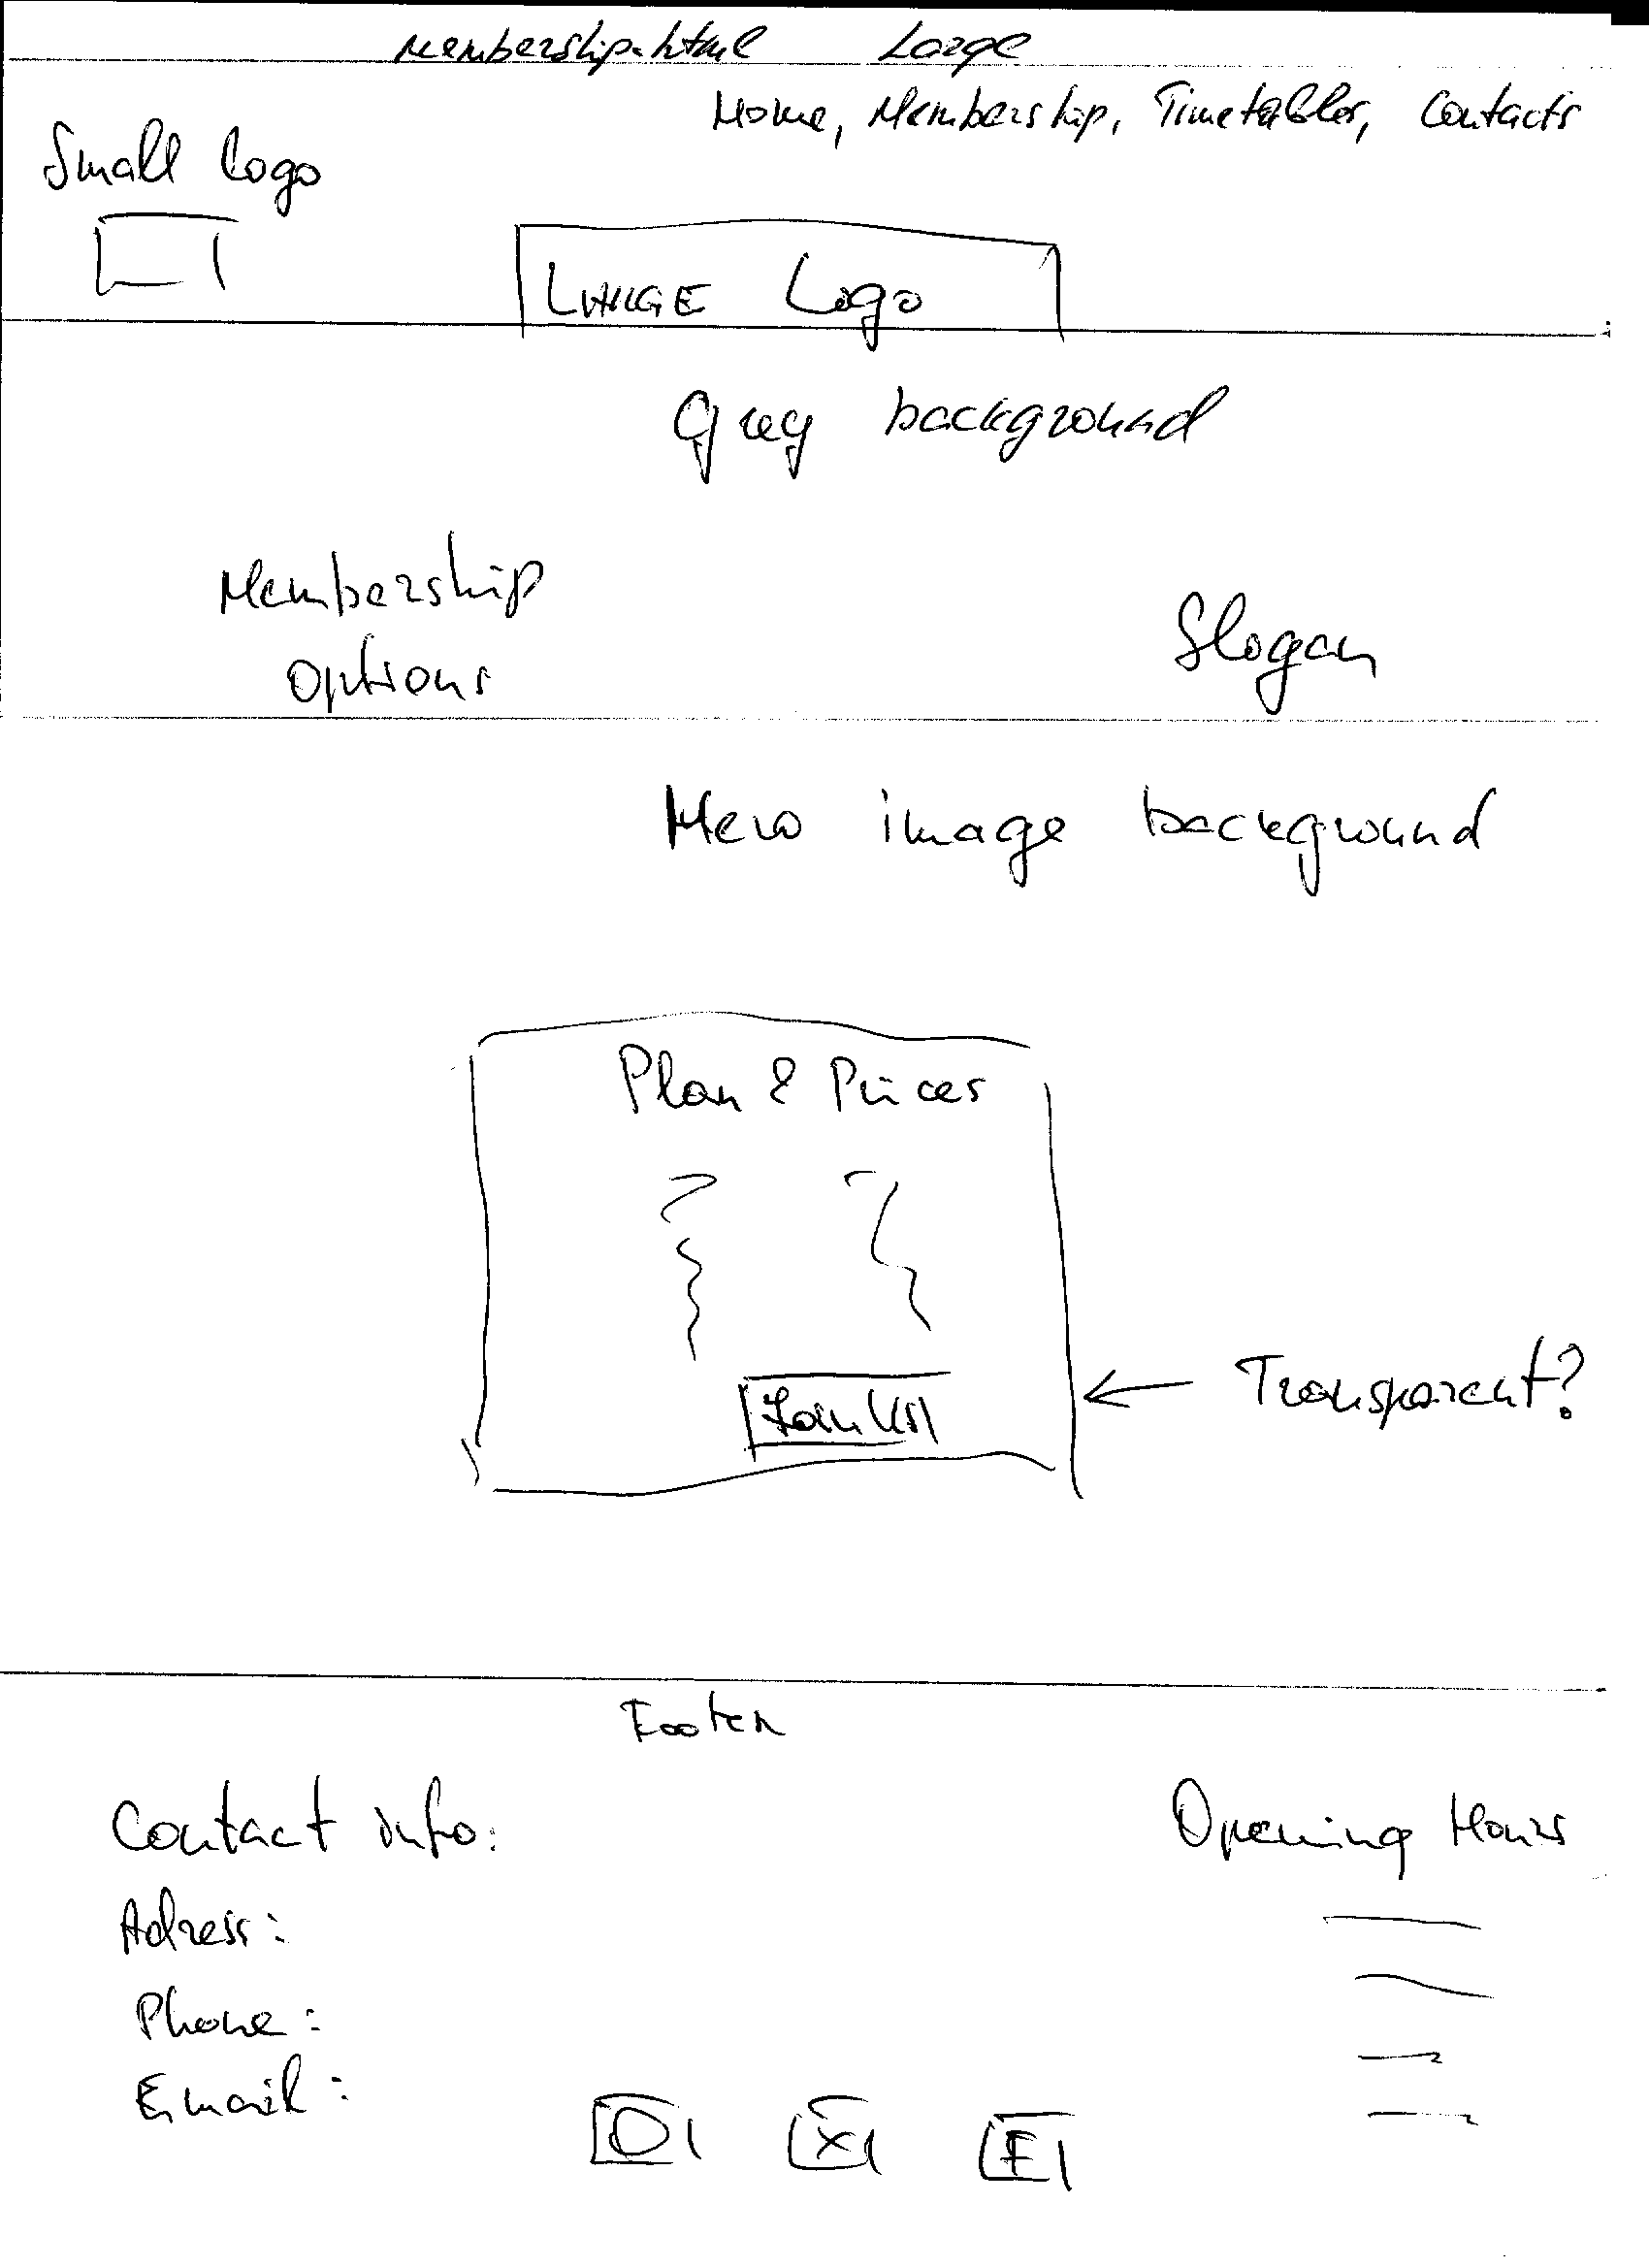 Membership.html Large
Home, Membership, Timetables, Contacts
Small Logo
LARGE Logo
Grey background
Membership
options
Slogan
Hero image background
Plan & Prices
Join Us
Transparent?
Footer
Contact info:
Opening Hours
Adress:
Phone:
Email:
O X F